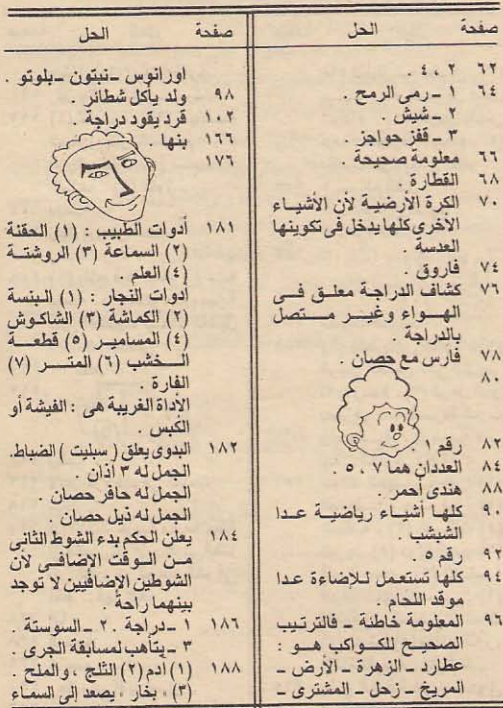 صفحة الحل
٦٢ ٢ ، ٤ .
٦٤ ١ ـ رمى الرمح .
٢ ـ شيش .
٣ ـ قفز حواجز .
٦٦ معلومة صحيحة .
٦٨ القطارة .
٧٠ الكرة الأرضية لأن الأشياء
الأخرى كلها يدخل فى تكوينها
العدسة .
٧٤ فاروق .
٧٦ كشاف الدراجة معلق فى
الهواء وغير متصل
بالدراجة .
٧٨ فارس مع حصان .
٨٠
٨٢ رقم ١ .
٨٤ العددان هما ٧ ، ٥ .
٨٨ هندى أحمر .
٩٠ كلها أشياء رياضية عدا
الشبشب .
٩٢ رقم ٥ .
٩٤ كلها تستعمل للإضاءة عدا
موقد اللحام .
٩٦ المعلومة خاطئة ـ فالترتيب
الصحيح للكواكب هو :
عطارد ـ الزهرة ـ الأرض ـ
المريخ ـ زحل ـ المشترى ـ
صفحة الحل
اورانوس ـ نبتون ـ بلوتو .
٩٨ ولد يأكل شطائر .
١٠٢ قرد يقود دراجة .
١٦٦ بنها .
١٧٦
١٨١ أدوات الطبيب : (١) الحقنة
(٢) السماعة (٣) الروشتة
(٤) العلم .
أدوات النجار : (١) البنسة
(٢) الكماشة (٣) الشاكوش
(٤) المسامير (٥) قطعة
الخشب (٦) المتر (٧)
الفارة .
الأداة الغريبة هى : الفيشة أو
الكبس .
١٨٢ البدوى يعلق ( سبليت ) الضباط.
الجمل له ٣ أذان .
الجمل له حافر حصان .
الجمل له ذيل حصان .
١٨٤ يعلن الحكم بدء الشوط الثانى
من الوقت الإضافى لأن
الشوطين الإضافيين لا توجد
بينهما راحة .
١٨٦ ١ ـ دراجة . ٢ ـ السوستة .
٣ ـ يتأهب لمسابقة الجرى .
١٨٨ (١) ادم (٢) الثلج ، والملح .
(٣) ، بخار ، يصعد إلى السماء